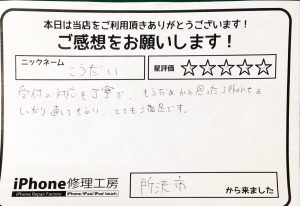 本日は当店をご利用頂きありがとうございます!
ご感想をお願いします!
ニックネーム
こうだい
星評価 ☆☆☆☆☆
受付の対応も丁寧で、もうだめかと思ったiPhoneも
しっかり直してもらい、とても満足です。
iPhone修理工房
iPhone Repair Factory iPhone/iPad/iPod touch
所沢市
から来ました